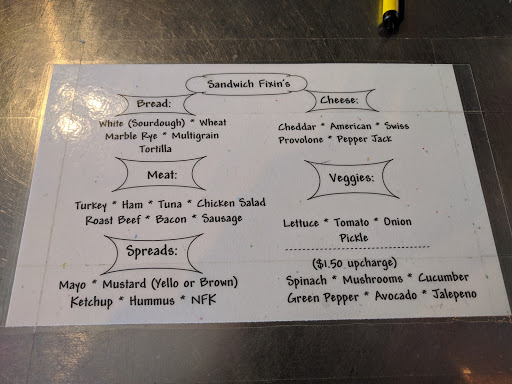 Sandwich Fixin's
Bread:
White (Sourdough) * Wheat
Marble Rye * Multigrain
Tortilla
Cheese:
Cheddar * American * Swiss
Provolone * Pepper Jack
Meat:
Turkey * Ham * Tuna * Chicken Salad
Roast Beef * Bacon * Sausage
Veggies:
Lettuce * Tomato * Onion
Pickle
($1.50 upcharge)
Spinach * Mushrooms * Cucumber
Green Pepper * Avocado * Jalepeno
Spreads:
Mayo * Mustard (Yello or Brown)
Ketchup * Hummus * NFK